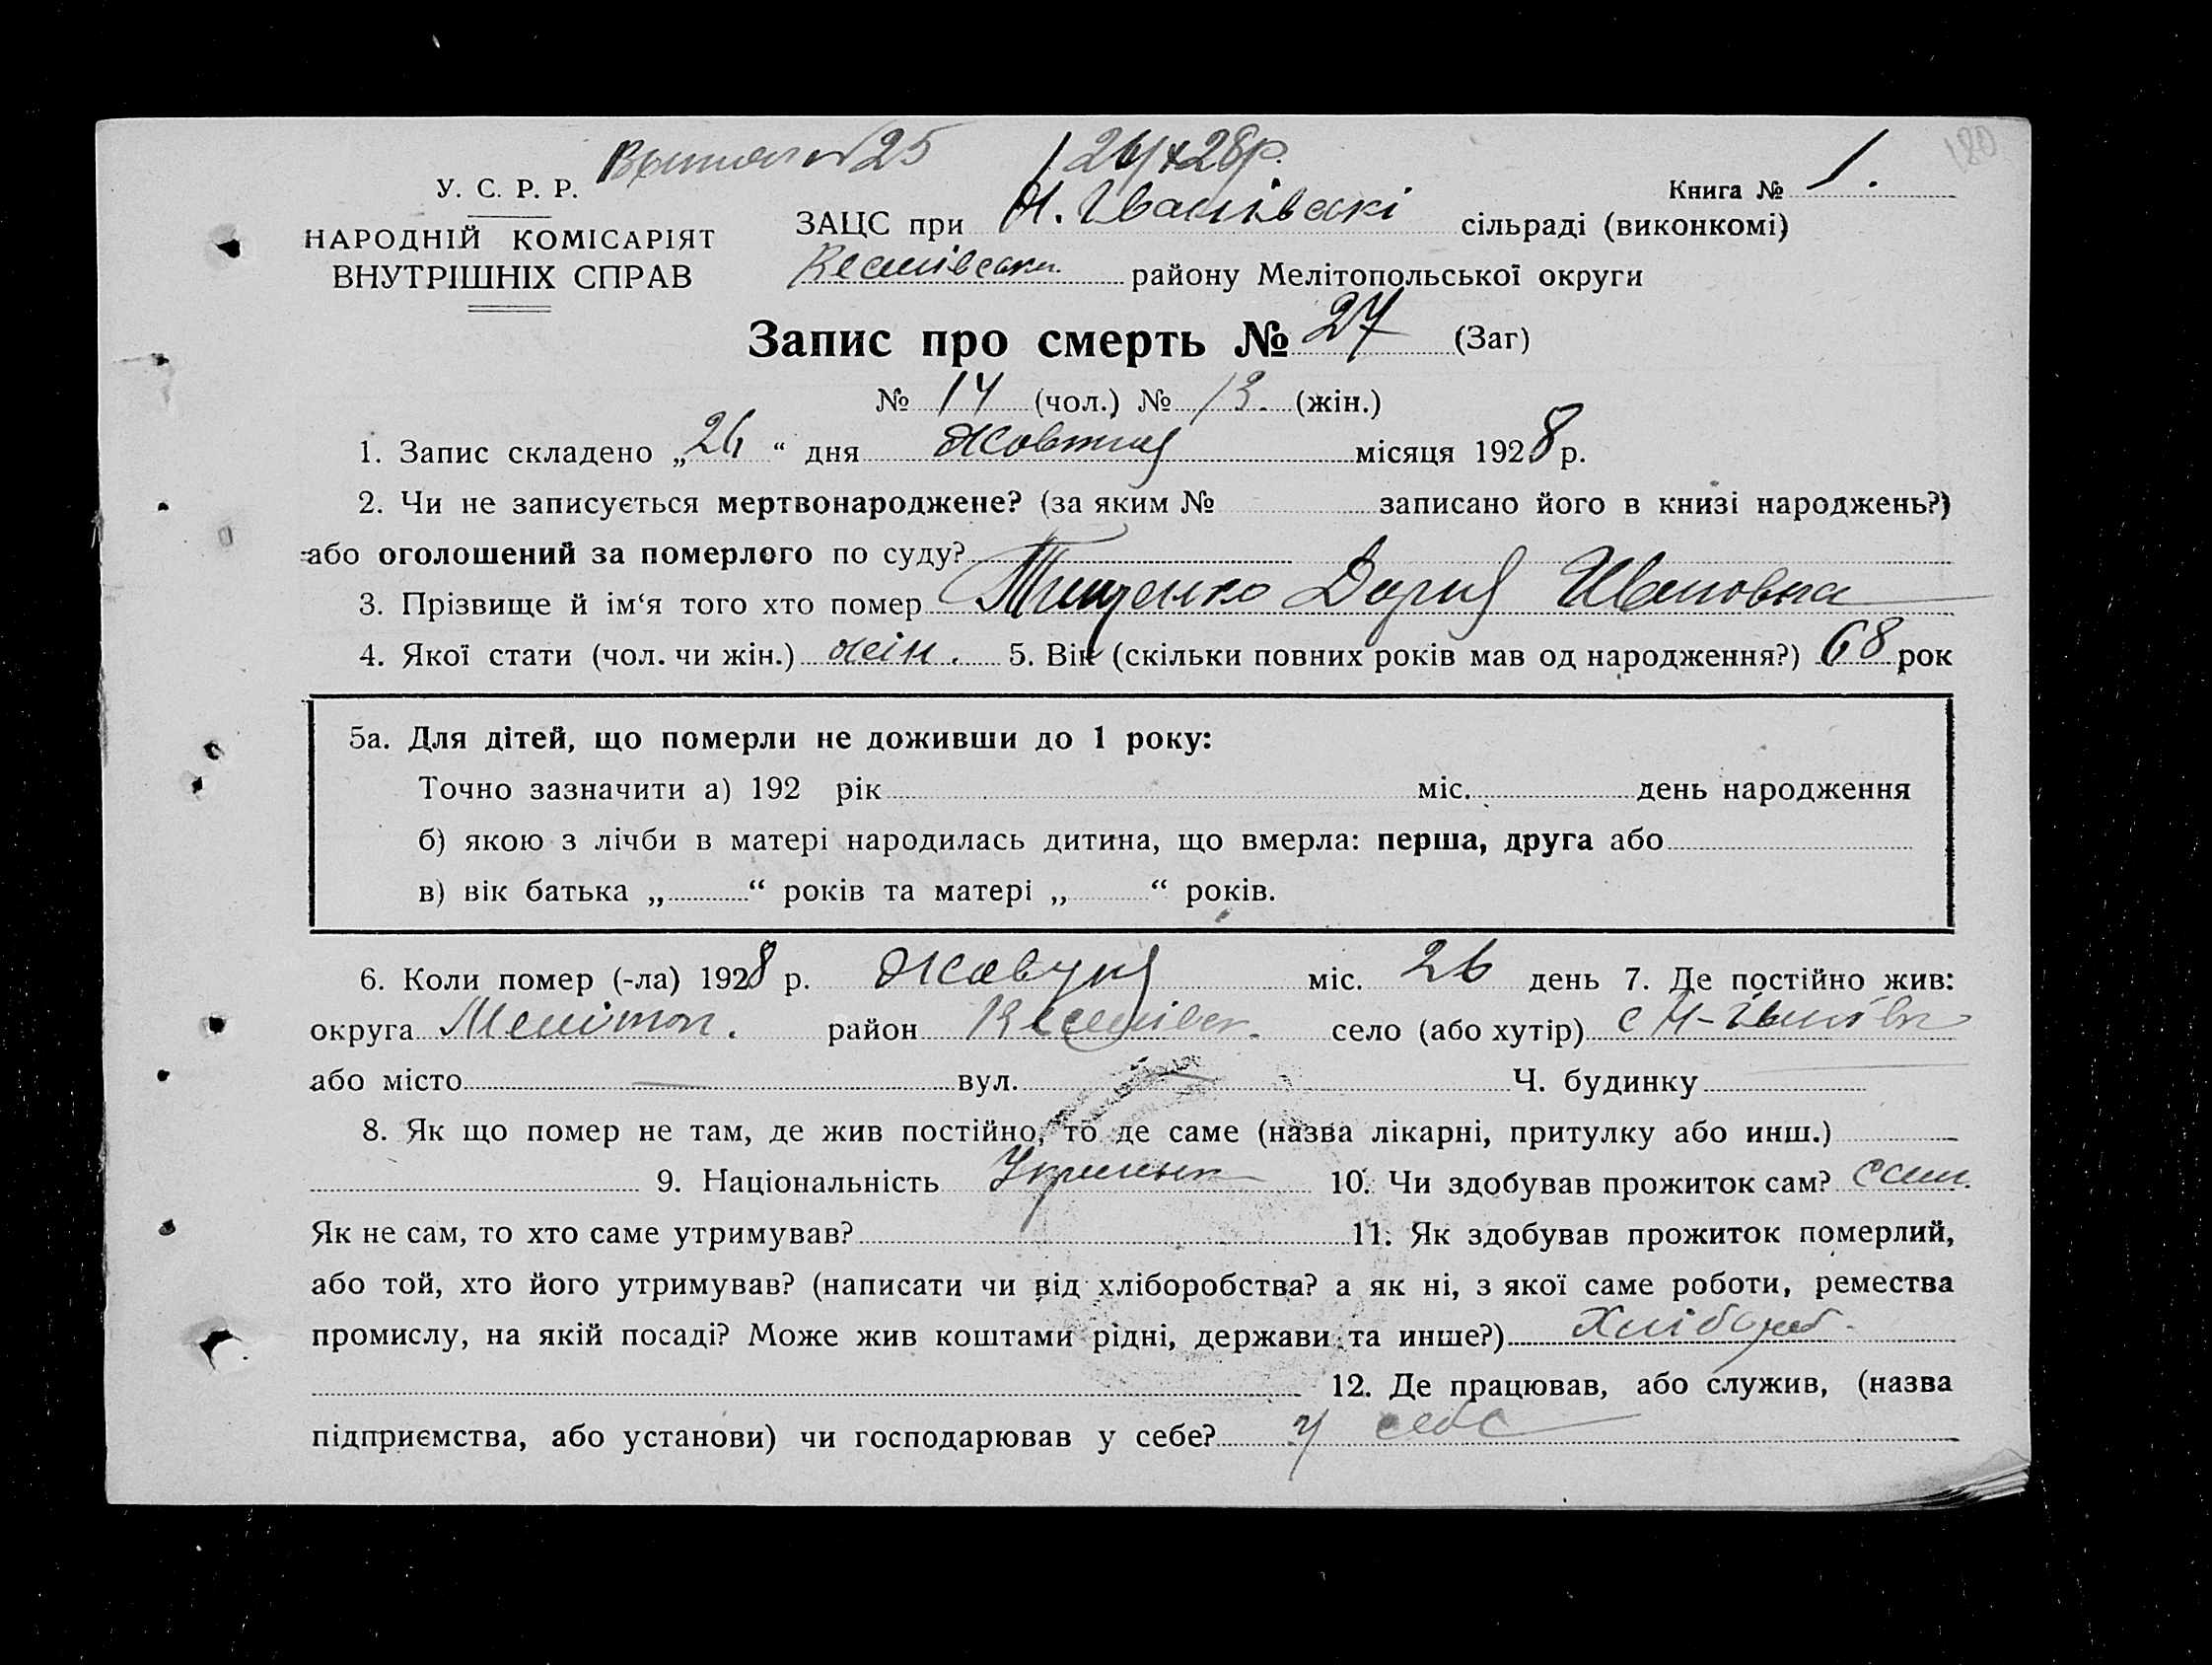 № 25 26/X 28р.
180
У. С. Р. Р.
НАРОДНІЙ КОМІСАРІЯТ
ВНУТРІШНІХ СПРАВ
Книга № 1.
ЗАЦС при Н. Іванівскі сільраді (виконкомі)
району Мелітопольської округи
Запис про смерть № 27 (Заг)
№ 14 (чол.) № 13. (жін.)
1. Запис складено „26“ дня Жовтня місяця 1928 р.
2. Чи не записується мертвонароджене? (за яким № записано його в книзі народжень?)
або оголошений за померлого по суду?
3. Прізвище й ім‘я того хто помер Тищенко Дария Ивановна
4. Якої стати (чол. чи жін.) жін. 5. Вік (скільки повних років мав од народження?) 68 рок
5а. Для дітей, що померли не доживши до 1 року:
Точно зазначити а) 192 рік міс. день народження
б) якою з лічби в матері народилась дитина, що вмерла: перша, друга або
в) вік батька „ “ років та матері „ “ років.
6. Коли помер (-ла) 1928 р. міс. 26 день 7. Де постійно жив:
округа Мелітоп. район село (або хутір) с Н-Іванівка
або місто — вул. — Ч. будинку
8. Як що помер не там, де жив постійно, то де саме (назва лікарні, притулку або инш.)
9. Національність 10. Чи здобував прожиток сам? сам.
Як не сам, то хто саме утримував? 11. Як здобував прожиток померлий,
або той, хто його утримував? (написати чи від хліборобства? а як ні, з якої саме роботи, ремества
промислу, на якій посаді? Може жив коштами рідні, держави та инше?) Хлібороб.
12. Де працював, або служив, (назва
підприємства, або установи) чи господарював у себе? у себе